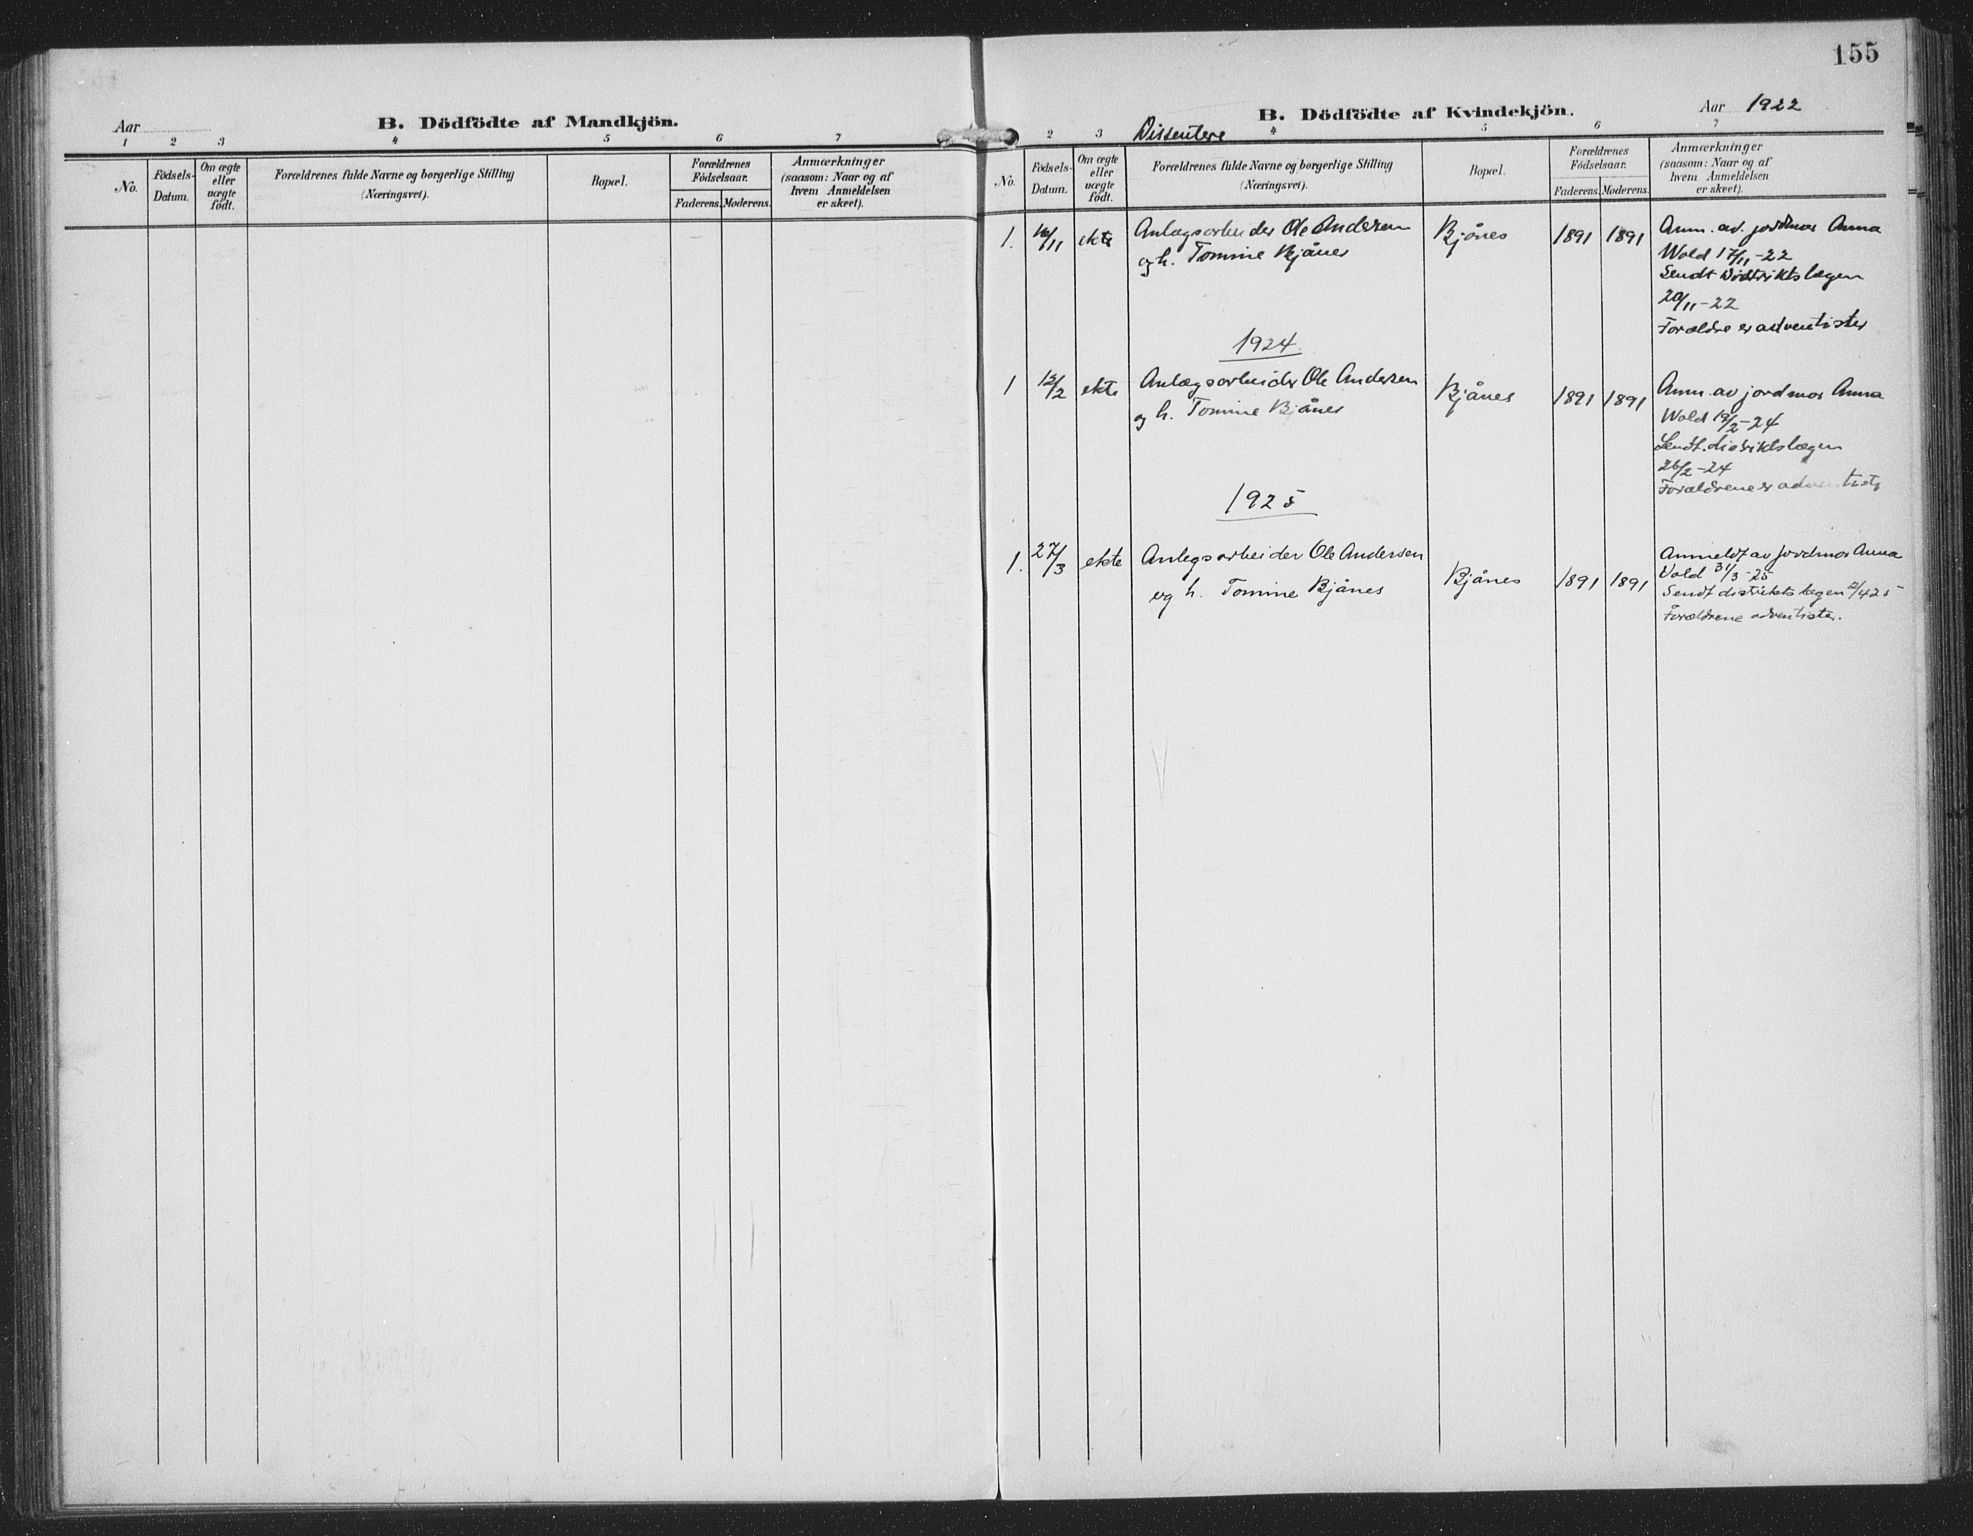 155
Aar
B. Dödfödte af Mandkjön.
1 2 3 4 5 6 7
No.
Födsels-
Datum.
Om ægte
eller
uægte
födt.
Forældrenes fulde Navne og borgerlige Stilling
(Næringsvei).
Bopæl.
Forældrenes
Födselsaar.
Faderens. Moderens.
Anmærkninger
(saasom: Naar og af
hvem Anmeldelsen
er skeet).
B. Dödfödte af Kvindekjön.
Aar 1922
Dissentere
2 3 4 5 6 7
No.
Födsels-
Datum.
Om ægte
eller
uægte
födt.
Forældrenes fulde Navne og borgerlige Stilling
(Næringsvei).
Bopæl.
Forældrenes
Födselsaar.
Faderens. Moderens.
Anmærkninger
(saasom: Naar og af
hvem Anmeldelsen
er skeet).
1. 16/11 ekte Anlægsarbeider Ole Andersen
og h. Tomine Bjånes
Bjånes 1891 1891
Anm. av jordmor Anna
Wold 17/11-22
Sendt distriktslægen
20/11-22
Forældre er adventister
1924
1 12/2 ekte Anlægsarbeider Ole Andersen
og h. Tomine Bjånes
Bjånes 1891 1891
Anm. av jordmor Anna
Wold 19/2-24
Sendt distriktslægen
26/2-24
Forældrene er adventister
1925
1. 27/3 ekte Anlegsarbeider Ole Andersen
og h. Tomine Bjånes
Bjånes 1891 1891
Anmeldt av jordmor Anna
Vold 31/3-25
Sendt distriktslægen 2/4 25
Forældrene adventister.